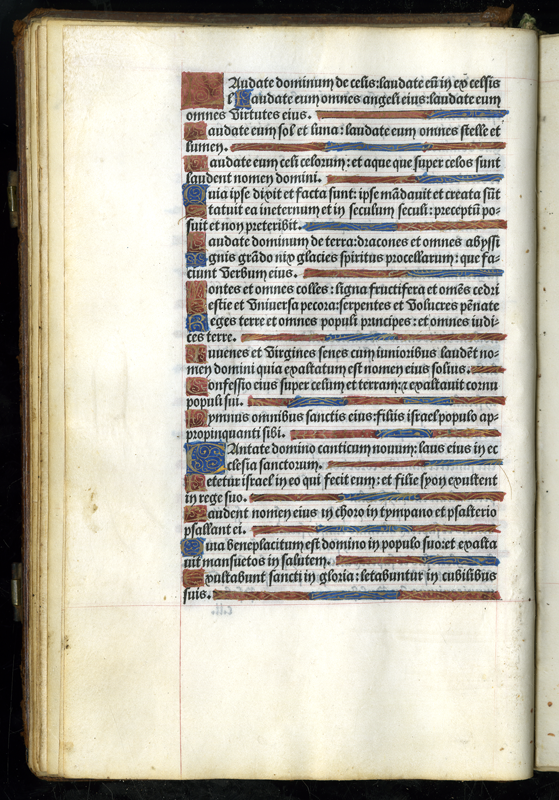 LAudate dominum de celis: laudate eū in excelsis
Laudate eum omnes angeli eius: laudate eum
omnes virtutes eius.
Laudate eum sol et luna: laudate eum omnes stelle et
lumen.
Laudate eum celi celorum: et aque que super celos sunt
laudent nomen domini.
Quia ipse dixit et facta sunt: ipse mādauit et creata sūt
Statuit ea ineternum et in seculum seculi: preceptū po-
suit et non preteribit.
Laudate dominum de terra: dracones et omnes abyssi
Ignis grādo nix glacies spiritus procellarum: que fa-
ciunt verbum eius.
Montes et omnes colles: ligna fructifera et omēs cedri
Bestie et vniversa pecora: serpentes et volucres pēnate
Reges terre et omnes populi principes: et omnes iudi-
ces terre.
Iuuenes et virgines senes cum iunioribus laudēt no-
men domini quia exaltatum est nomen eius solius.
Confessio eius super celum et terram: ⁊ exaltauit cornu
populi sui.
Hymnus omnibus sanctis eius: filiis israel populo ap-
propinquanti sibi.
CAntate domino canticum nouum: laus eius in ec
clesia sanctorum.
Letetur israel in eo qui fecit eum: et filie syon exultent
in rege suo.
Laudent nomen eius in choro in tympano et psalterio
psallant ei.
Quia beneplacitum est domino in populo suo: et exalta
uit mansuetos in salutem.
Exultabunt sancti in gloria: letabuntur in cubilibus
suis.